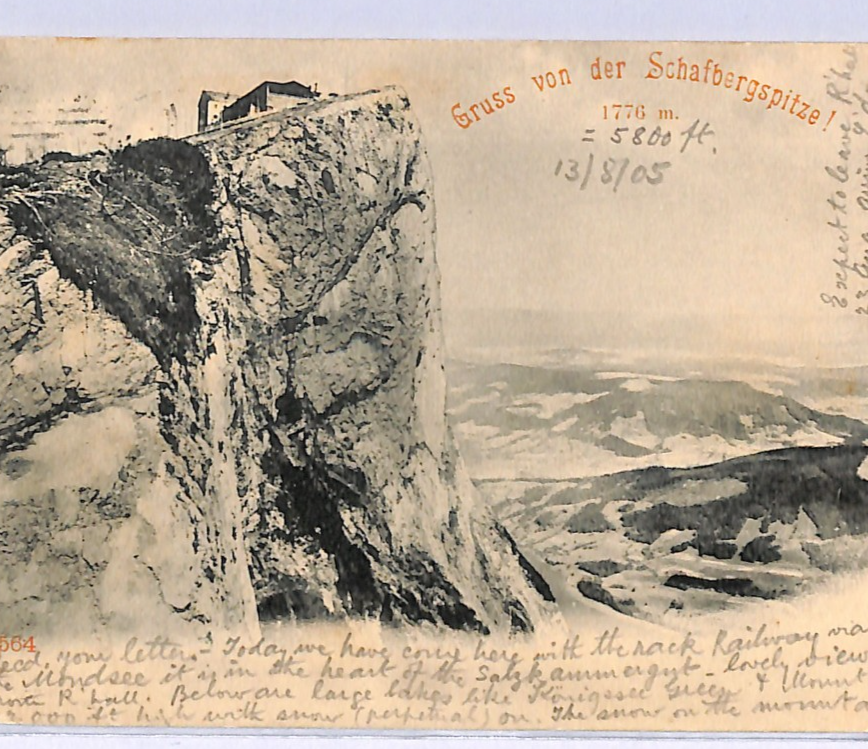 Gruss von der Schafbergspitze!
1776 m.
= 5800 ft.
13/8/05
Expect to leave R'hall
564
recd. your letter. - Today we have come here with the rack Railway via
Mondsee it is in the heart of the Salzkammergut - lovely view
R'hall. Below are large lakes like Königssee Green & Mount
000 ft high with snow (perpetual) on. The snow on the mounta